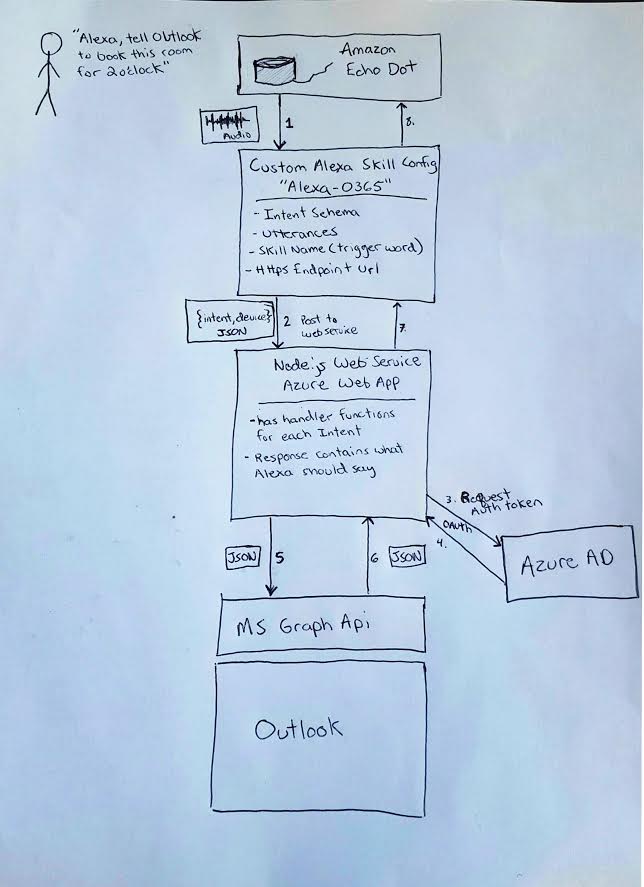 "Alexa, tell Outlook
to book this room
for 2o'clock"
Amazon
Echo Dot
Audio
1
8.
Custom Alexa Skill Config
"Alexa-O365"
- Intent Schema
- Utterances
- Skill Name (trigger word)
- Https Endpoint Url
{intent, device}
JSON
2 Post to
webservice
7.
Node.js Web Service
Azure Web App
- has handler functions
for each Intent
- Response contains what
Alexa should say
3. Request
Auth token
OAuth
4.
Azure AD
JSON
5
6
JSON
MS Graph Api
Outlook